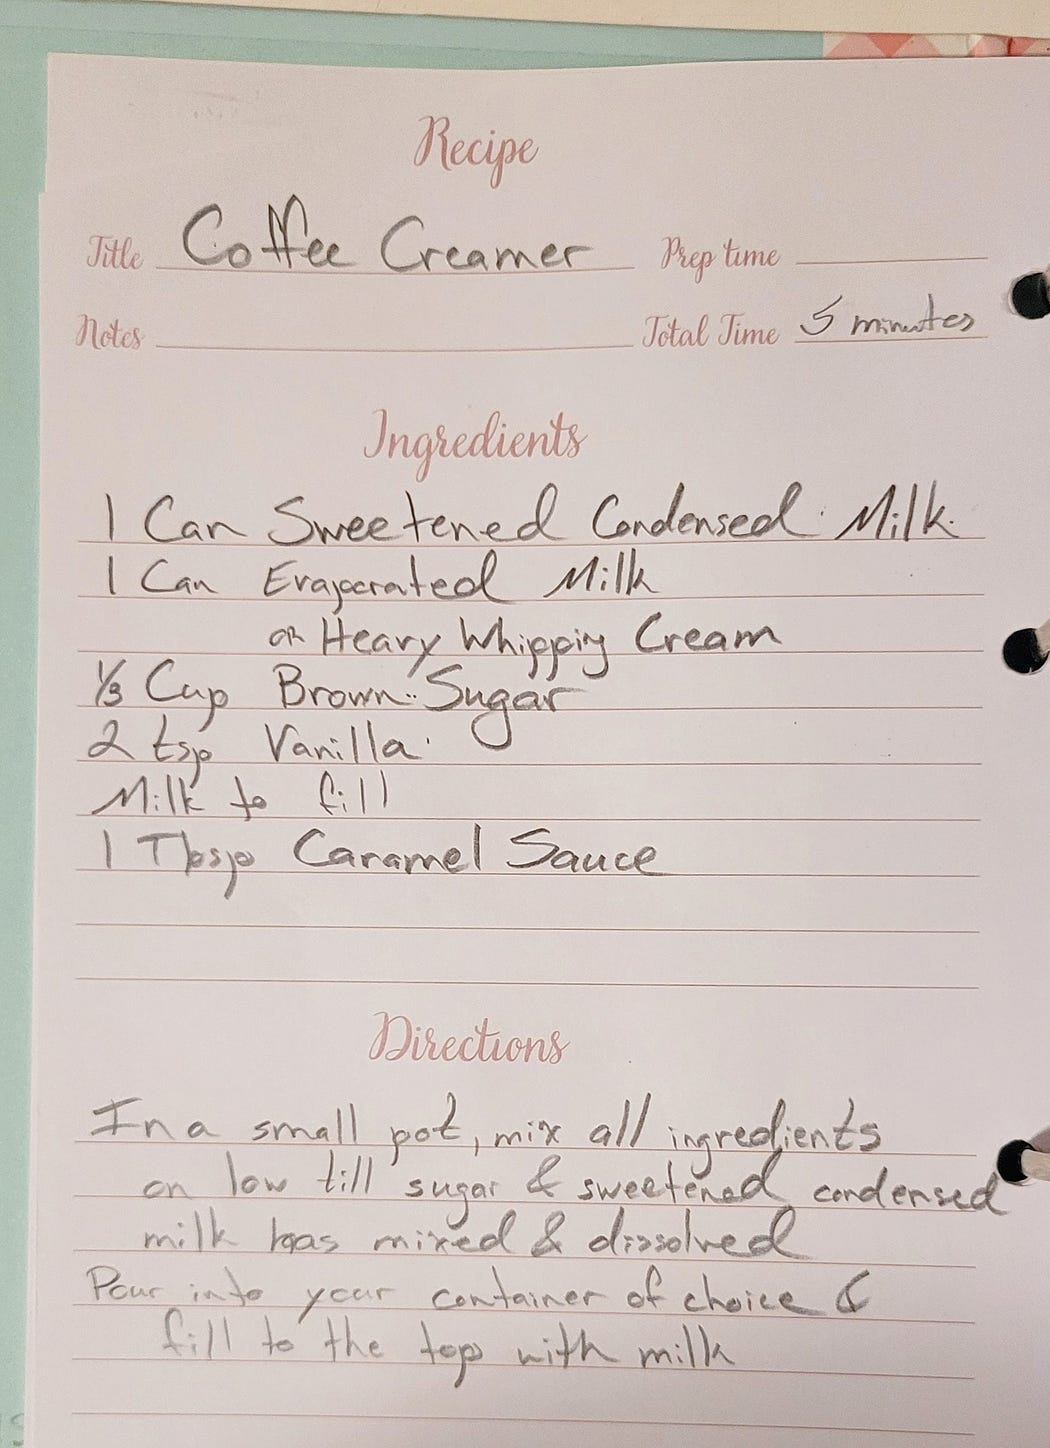 Recipe
Title Coffee Creamer Prep time
Notes Total Time 5 minutes
Ingredients
1 Can Sweetened Condensed Milk
1 Can Evaporated Milk
OR Heavy Whipping Cream
1/3 Cup Brown Sugar
2 tsp Vanilla
Milk to fill
1 Tbsp Caramel Sauce
Directions
In a small pot, mix all ingredients
on low till sugar & sweetened condensed
milk has mixed & dissolved
Pour into your container of choice &
fill to the top with milk